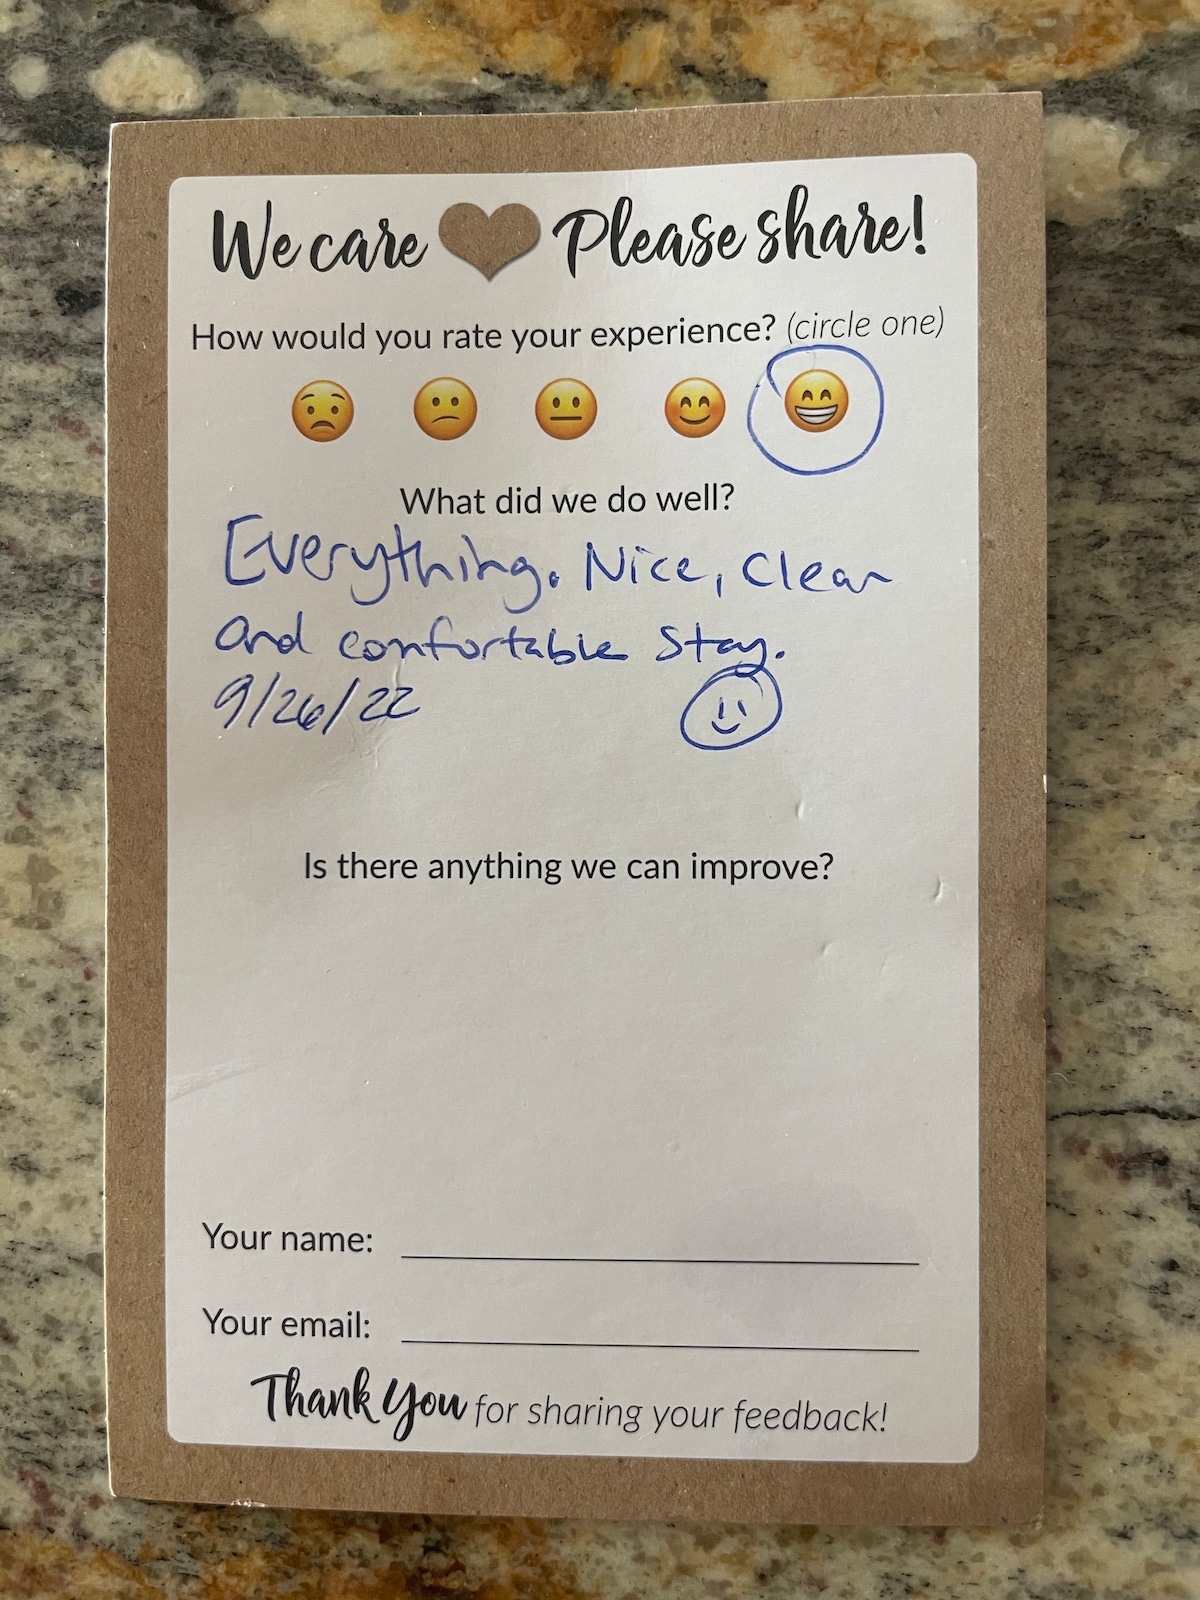 We care Please share!
How would you rate your experience? (circle one)
What did we do well?
Everything. Nice, Clean
and confortable stay.
9/26/22
Is there anything we can improve?
Your name:
Your email:
Thank You for sharing your feedback!